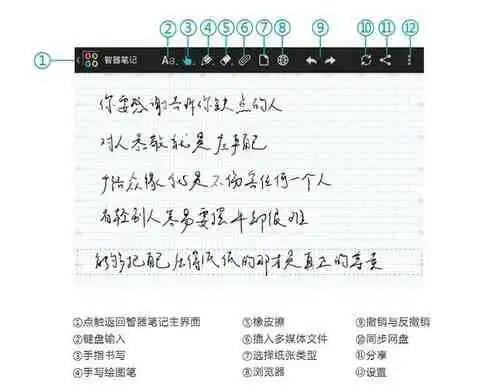 ② ③ ④ ⑤ ⑥ ⑦ ⑧ ⑨ ⑩ ⑪ ⑫
① 智器笔记 Aa
你要感谢告诉你缺点的人
对人恭敬就是自己
广结众缘就是不伤害任何一个人
看轻别人容易要摆平却很难
能够把自己压得低低的那才是真正的尊贵
①点触返回智器笔记主界面 ⑤橡皮擦 ⑨撤销与反撤销
②键盘输入 ⑥插入多媒体文件 ⑩同步网盘
③手指书写 ⑦选择纸张类型 ⑪分享
④手写绘图笔 ⑧浏览器 ⑫设置